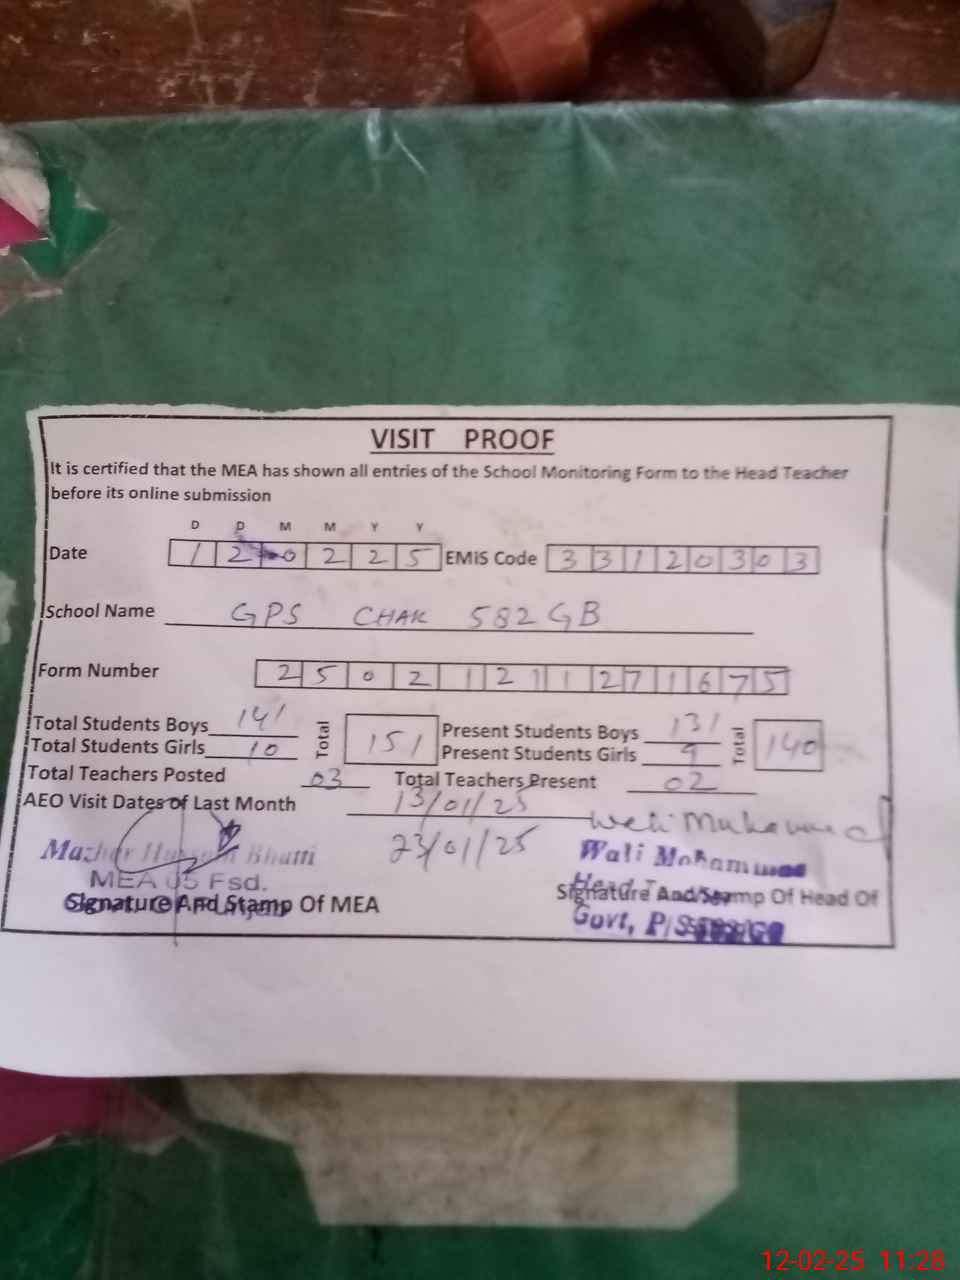 VISIT PROOF
It is certified that the MEA has shown all entries of the School Monitoring Form to the Head Teacher
before its online submission
D D M M Y Y
Date 1 2 0 2 2 5 EMIS Code 3 3 1 2 0 3 0 3
School Name GPS CHAK 582 GB
Form Number 2 5 0 2 1 2 1 1 2 7 1 6 7 5
Total Students Boys 141 Total 151 Present Students Boys 131 Total 140
Total Students Girls 10 Present Students Girls 9
Total Teachers Posted 03 Total Teachers Present 02
AEO Visit Dates of Last Month 13/01/25
23/01/25
Wali Muhammad
Mazhar Hussain Bhatti
MEA 05 Fsd.
Signature And Stamp Of MEA
Wali Mohammad
Signature And Stamp Of Head Of
Govt, P/S
12-02-25 11:28